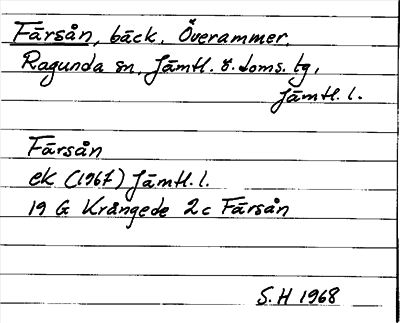 Färsån, bäck, Överammer,
Ragunda sn, Jämtl. ö. doms. tg,
Jämtl. l.
Färsån
ek (1967) Jämtl. l.
19 G Krångede 2c Färsån
S. H 1968